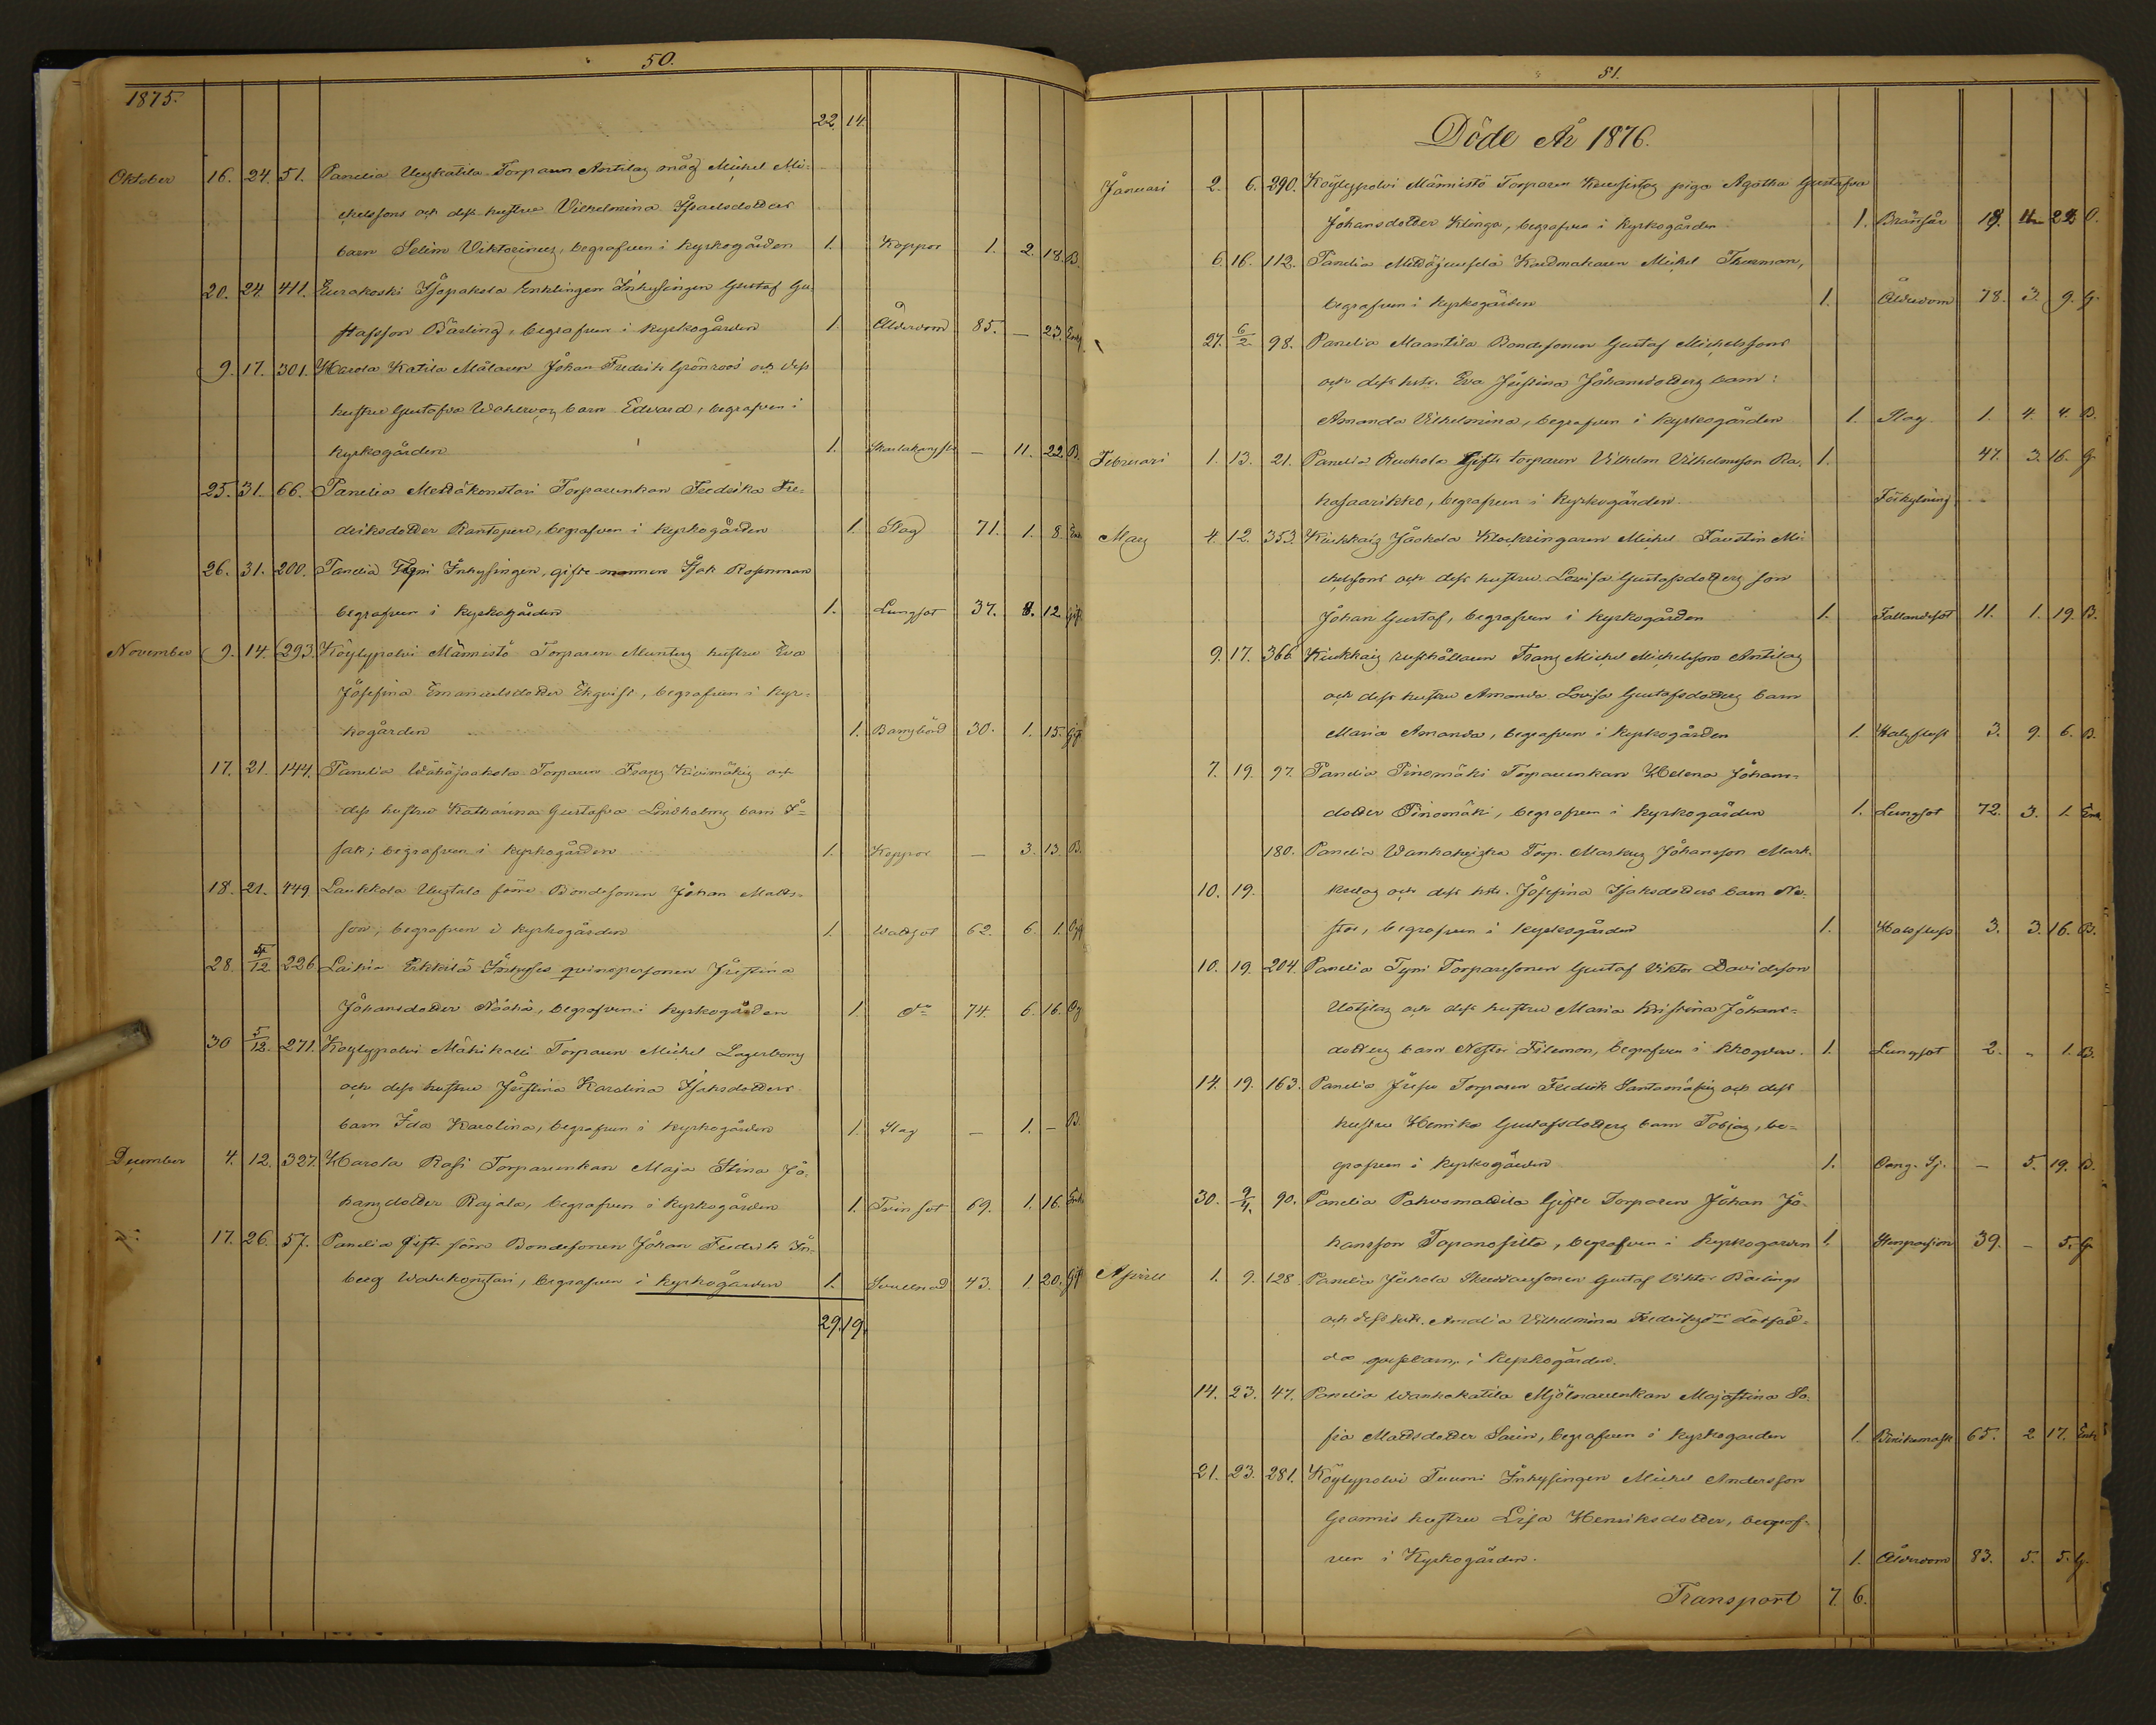 50.
1875.
22 14
Oktober 16. 24. 51. Panelia Uuskatila Torparen Antilas måg Michel Mi-
chelssons och dess hustru Vilhelmina Isaelsdotters
barn Selim Viktorinus, begrafven i kyrkogården 1. Koppor 1. 2. 18. B.
20. 24. 411. Eurakoski Isopakola Enklingen Inhysingen Gustaf Gu-
stafsson Bärling, begrafven i kyrkogården 1. Ålderdom 85. — 23. Enkl
9. 17. 301. Harola Katila Målaren Johan Fredrik Grönroos och dess
hustru Gustafva Wahlroos barn Edvard, begrafven i
kyrkogården 1. Skarlakansf — 11. 22. B.
25. 31. 66. Panelia Mettäkonstari Torparenkan Fredrika Fre-
driksdotter Rantanen, begrafven i kyrkogården 1. Slag 71. 1. 8. Enk
26. 31. 200. Panelia Tyni Inhysingen, gifte mannen Isak Rosenman
begrafven i kyrkogården 1. Lungsot 37. 8. 12. Gift
November 9. 14. 293. Köylypolvi Männistö Torparen Munters hustru Eva
Josefina Emanuelsdotter Ekqvist, begrafven i kyr-
kogården 1. Barnsbörd 30. 1. 15. Gift
17. 21. 144. Panelia Wähäjaakola Torparen Frans Kivimäkis och
dess hustru Katharina Gustafva Lindholms barn I-
sak; begrafven i kyrkogården 1. Koppor — 3. 13. B.
18. 21. 449 Laukkola Uusitalo förre Bondesonen Johan Matts-
son, begrafven i kyrkogården 1. Wattsot 62. 6. 1. Ogift
28. 5/12 226 Laihia Erkkilä Inhyses qvinspersonen Justina
Johansdotter Nöähä, begrafven i kyrkogården 1. do 74. 6. 16. Og
30 5/12. 271. Köylypolvi Mäkikalli Torparen Michel Lagerboms
och dess hustru Justina Karolina Isaksdotters
barn Ida Karolina, begrafven i kyrkogården 1. Slag — 1. — B.
December 4. 12. 327. Harola Rosi Torparenkan Maja Stina Jo-
hansdotter Rajala, begrafven i kyrkogården 1. Tvinsot 69. 1. 16. Enk
17. 26. 57. Panelia Gift förre Bondesonen Johan Fredrik In-
berg Wähäkonstari, begrafven i kyrkogården 1. Svullnad 43. 1. 20. Gift
29. 19.
51.
Döde År 1876.
Januari 2. 6. 290. Köylypolvi Männistö Torparen Kuusistos piga Agatha Gustafva
Johansdotter Klinga, begrafven i kyrkogården 1. Brännsår 18. 11 22 O.
6. 16. 112. Panelia Mettäjuusela Kardmakaren Michel Thurman,
begrafven i kyrkogården 1. Ålderdom 78. 3. 9. G.
27. 6/2 98. Panelia Maantila Bondesonen Gustaf Michelssons
och dess hstr. Eva Justina Johansdotters barn:
Amanda Vilhelmina, begrafven i kyrkogården 1. Slag 1. 4. 4. B.
Februari 1. 13. 21. Panelia Ruohola Gifte torparen Vilhelm Vilhelmsson Ra- 1. 47. 3. 16. G.
hasaarikko, begrafven i kyrkogården. Förkylning
Mars 4. 12. 353. Kiukkais Jaakola Klockringaren Michel Faustin Mi-
chelssons och dess hustru Lovisa Gustafsdotters son
Johan Gustaf, begrafven i kyrkogården 1. Fallandesot 11. 1. 19. B.
9. 17. 366. Kiukkais rusthållaren Frans Michel Michelssons Antilas
och dess hustru Amanda Lovisa Gustafsdotters barn
Maria Amanda, begrafven i kyrkogården 1. Halsfluss 3. 9. 6. B.
7. 19. 97. Panelia Pinomäki Torparenkan Helena Johans-
dotter Pinomäki, begrafven i kyrkogården 1. Lungsot 72. 3. 1. Enk
180. Panelia Wanhakeiska Torp. Markus Johansson Mark-
10. 19. kulas och dess hstr. Josefina Isaksdotters barn Ne-
stor, begrafven i kyrkogården 1. Halsfluss 3. 3. 16. B.
10. 19. 204. Panelia Tyni Torparesonen Gustaf Viktor Davidsson
Uotilas och dess hustru Maria Kristina Johans-
dotters barn Nestor Filemon, begrafven i kkogården. 1. Lungsot 2. - 1. B.
14. 19. 163. Panelia Jussu Torparen Fredrik Santamäkis och dess
hustru Henrika Gustafsdotters barn Tobias, be-
grafven i kyrkogården 1. Oang. Sj. — 5. 19. B.
30. 9/4. 90. Panelia Pahusmattila Gifte Torparen Johan Jo-
hansson Tapanosilta, begrafven i kyrkogården 1. Stenpassion 39. - 5. G.
Aprill 1. 9. 128. Panelia Jaakola Skräddaresonen Gustaf Viktor Bärlings
och dess hstr. Amalia Vilhelmina Fredriksdrs dödföd-
da gossebarn, i kyrkogården.
14. 23. 47. Panelia Wanhakatila Mjölnarenkan Majastina So-
fia Mattsdotter Sarin, begrafven i kyrkogården 1. Binikemask 65. 2 17. Enk
21. 23. 281. Köylypolvi Tuomi Inhysingen Michel Andersson
Grannis hustru Lisa Henriksdotter, begraf-
ven i Kyrkogården. 1. Ålderdom 83. 5. 5. G.
Transport 7. 6.